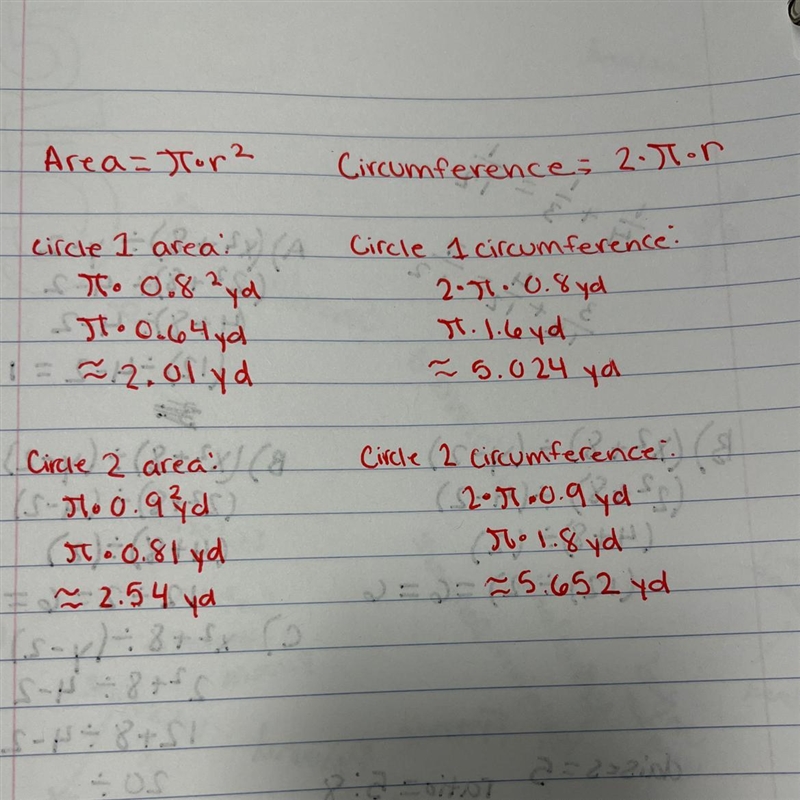 Area = π·r²
Circumference = 2·π·r
Circle 1 area:
π· 0.8²yd
π·0.64yd
≈ 2.01 yd
Circle 1 circumference:
2·π· 0.8yd
π·1.6yd
≈ 5.024 yd
Circle 2 area:
π·0.9²yd
π·0.81 yd
≈ 2.54 yd
Circle 2 circumference:
2·π·0.9 yd
π·1.8yd
≈5.652 yd